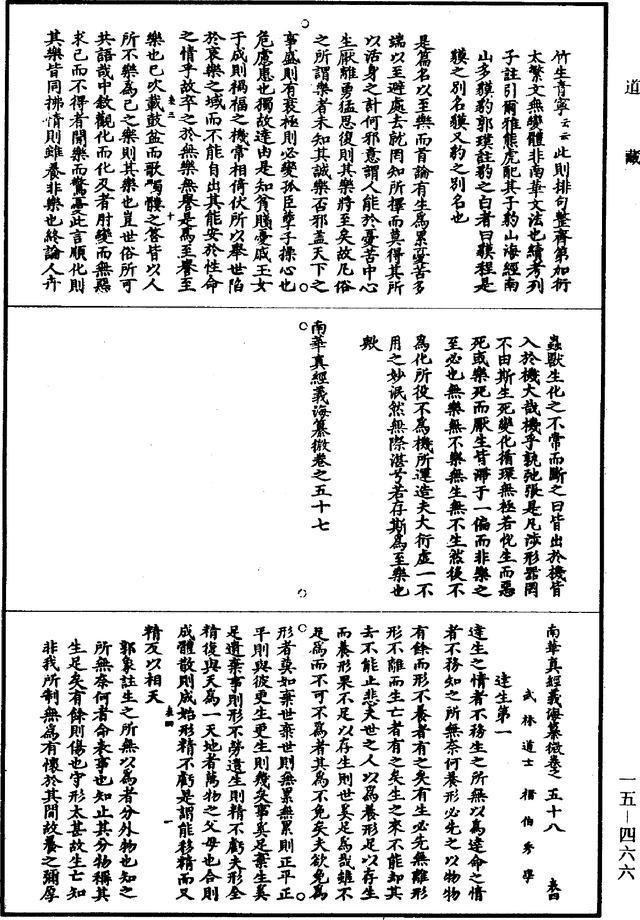 道藏
竹生青寧云云此則排句整齊第加衍
太繁文無變體非南華文法也續考列
子註引爾雅熊虎醜其子豹山海經南
山多貘豹郭璞註豹之白者曰貘程是
貘之別名貘又豹之別名也
是篇名以至樂而首論有生為累憂苦多
端以至避處去就罔知所擇而莫得其所
以活身之計何邪意謂人能於憂苦中心
生厭離勇猛思復則其樂將至矣故凡俗
之所謂樂者未知其誠樂否邪蓋天下之
事盛則有衰極則必變孤臣孽子操心也
危慮患也獨故達由是知貧賤憂戚玉女
于成則禍福之機常相倚伏所以舉世陷
於哀樂之域而不能自出其能安於性命
之情乎故卒之於無樂無譽是為至譽至
表三 十
樂也已次載鼓盆而歌髑髏之答皆以人
所不樂為己之樂則其樂也豈世俗所可
共語哉中敘觀化而化及者肘變而無惡
求己而不得者聞樂而驚憂此言順化則
其樂皆同拂情則雖養非樂也終論人卉
蟲獸生化之不常而斷之曰皆出於機皆
入於機大哉機乎孰弛張是凡涉形器罔
不由斯生死變化循環無極若悅生而惡
死或樂死而厭生皆滯于一偏而非樂之
至必也無樂無不樂無生無不生然後不
為化所役不為機所運造夫大衍虛一不
用之妙泯然無際湛兮若存斯為至樂也
歟
南華真經義海纂微卷之五十七
南華真經義海纂微卷之五十八 表四
武林道士褚伯秀學
達生第一
達生之情者不務生之所無以為達命之情
者不務知之所無奈何養形必先之以物物
有餘而形不養者有之矣有生必先無離形
形不離而生亡者有之矣生之來不能卻其
去不能止悲夫世之人以為養形足以存生
而養形果不足以存生則世奚足為哉雖不
足為而不可不為者其為不免矣夫欲免為
形者莫如棄世棄世則無累無累則正平正
平則與彼更生更生則幾矣事奚足棄生奚
足遺棄事則形不勞遺生則精不虧夫形全
精復與天為一天地者萬物之父母也合則
成體散則成始形精不虧是謂能移精而又
表四 一
精反以相天
郭象註生之所無以為者分外物也知之
所無奈何者命表事也知止其分物稱其
生足矣有餘則傷也守形太甚故生亡知
非我所制無為有懷於其間故養之彌厚
一五—四六六